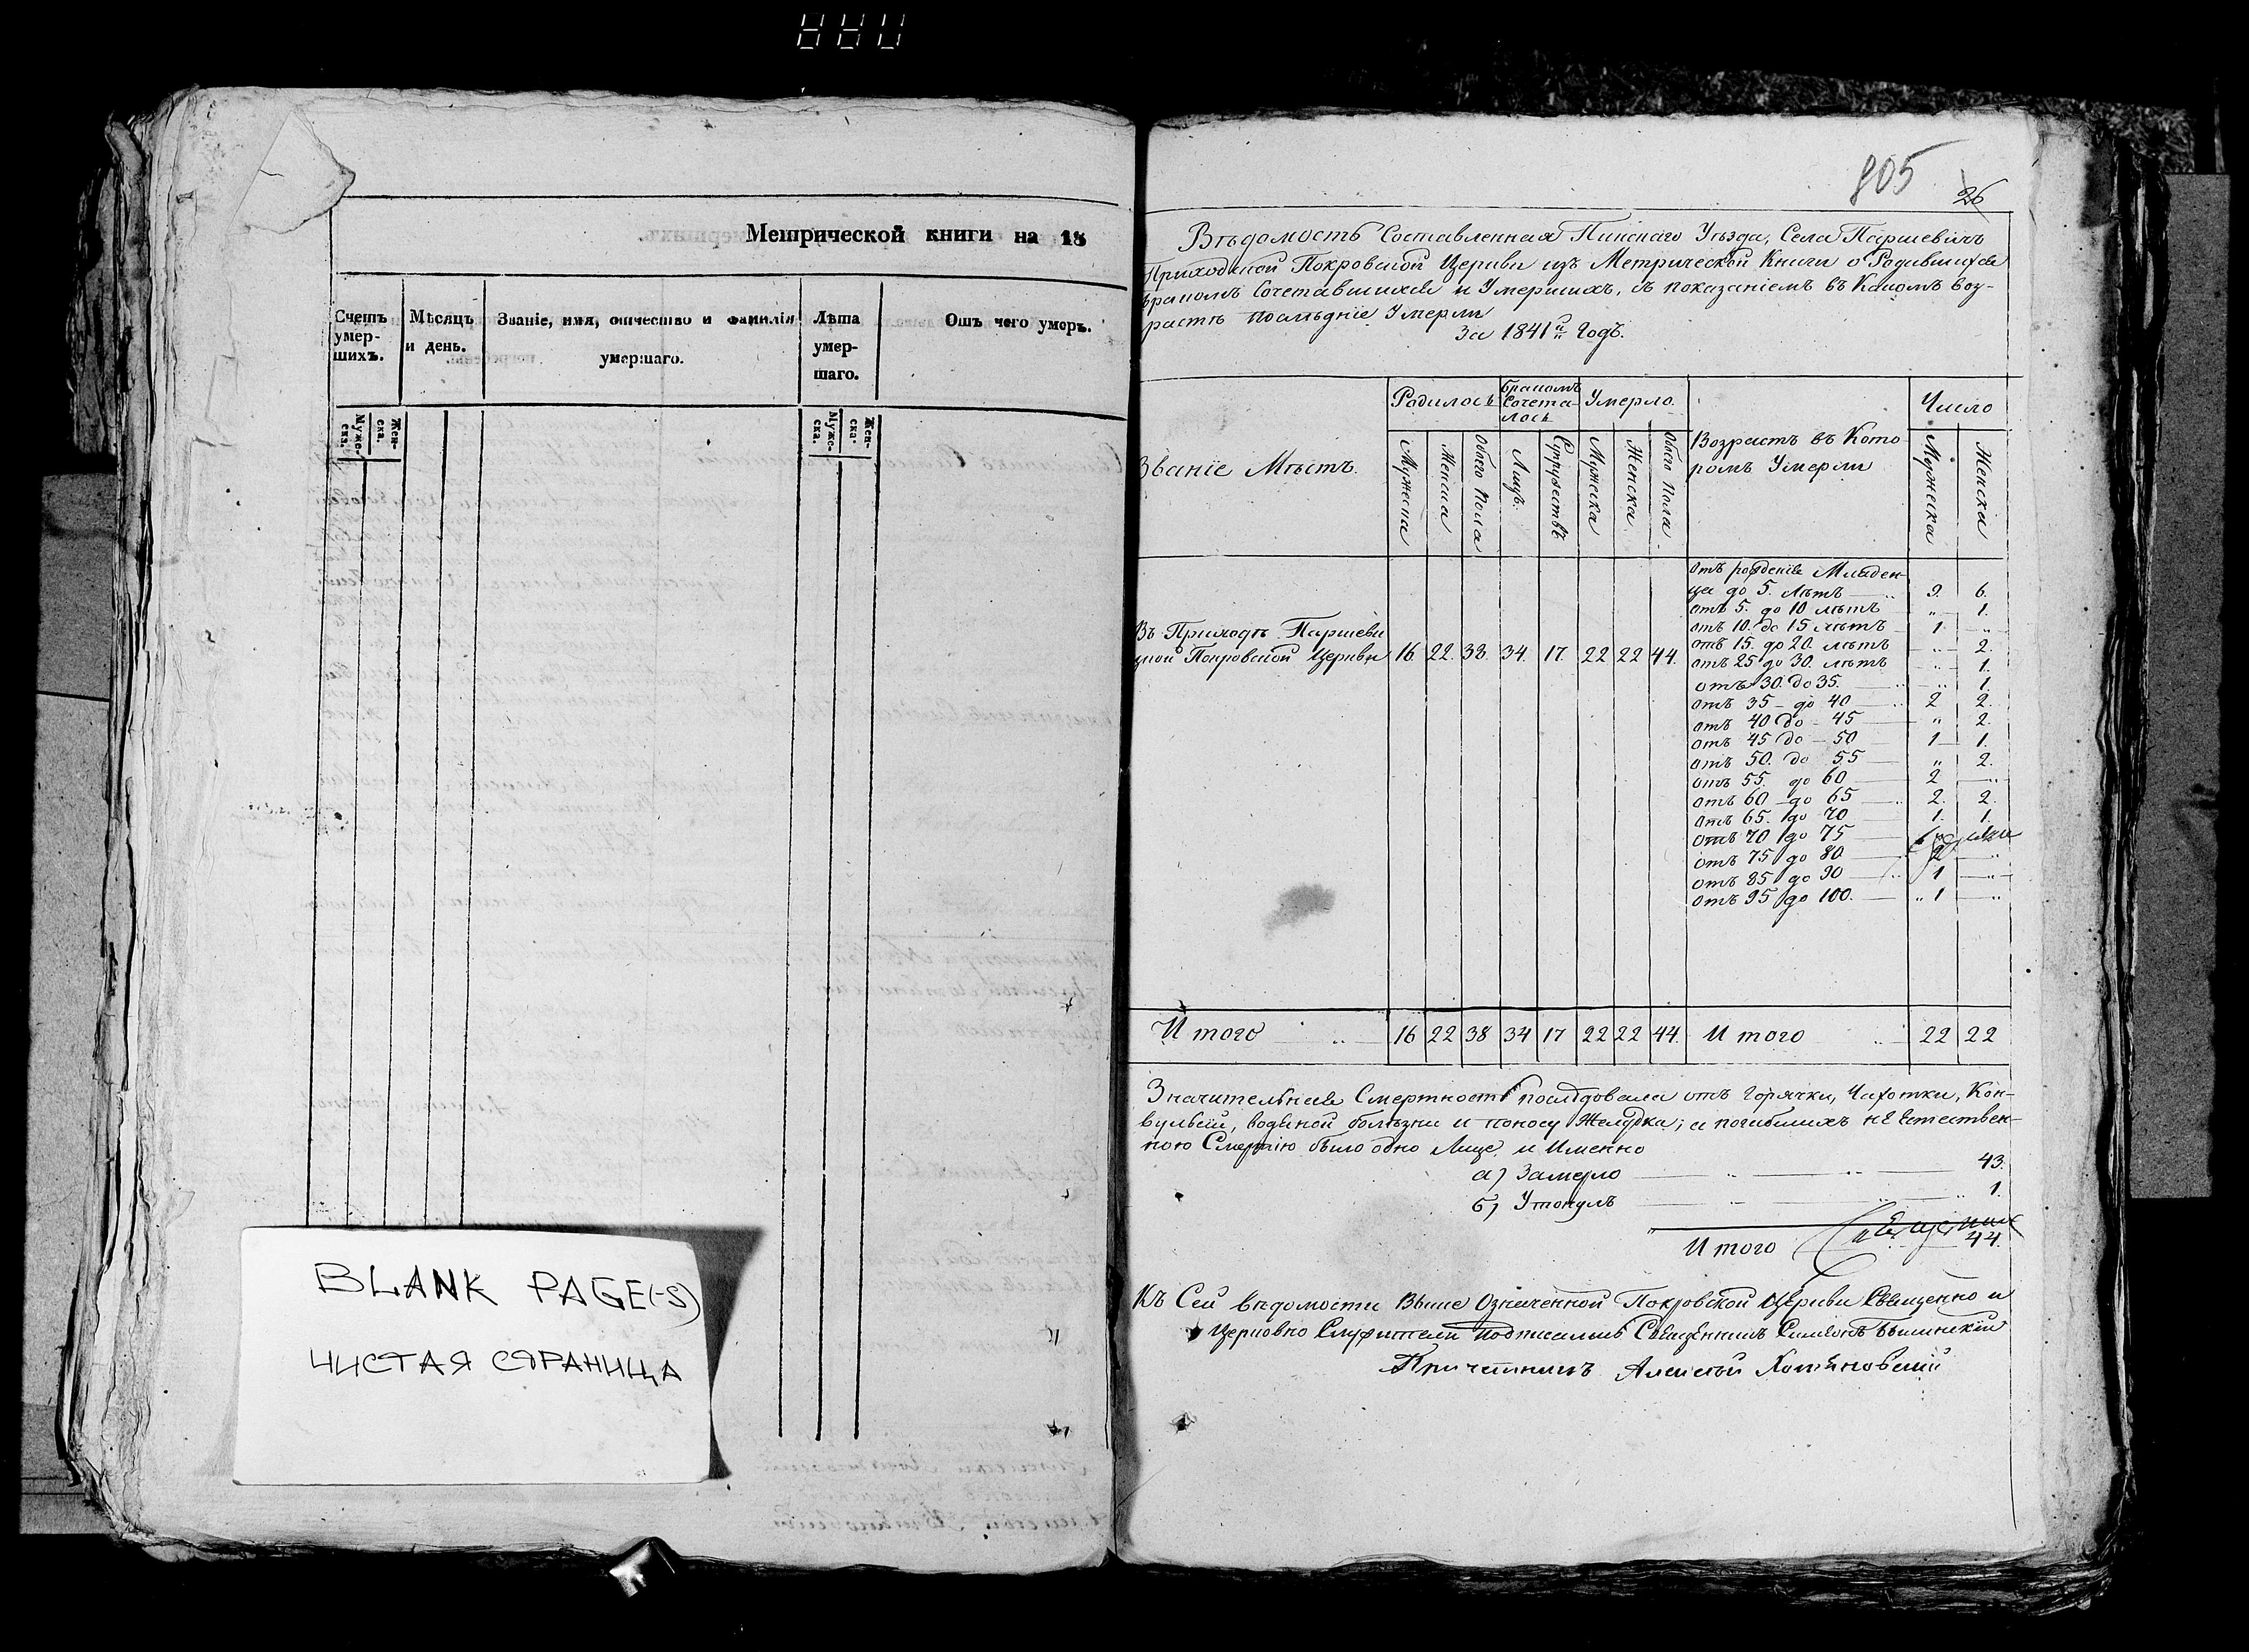 Метрической книги на 18
Счетъ умер-шихъ.
Мѣсяцъ и день.
Званіе, имя, отчество и фамилія умершаго.
Лѣта умер-шаго.
Отъ чего умеръ.
Муже-ска.
Жен-ска.
Муже-ска.
Жен-ска.
BLANK PAGE(-S)
ЧИСТАЯ СТРАНИЦА
805
26
Вѣдомость Составленная Пинскаго Уѣзда, Села Паршевичъ
Приходской Покровской Церкви изъ Метрической Книги о Родившихся
бракомъ Сочетавшихся и Умершихъ, съ показаніемъ въ Какомъ воз-
растѣ послѣдніе Умерли
За 1841й Годъ.
Званіе Мѣстъ.
Родилось
Бракомъ Сочета-лось
Умерло.
Возрастъ въ Кото-
ромъ Умерли
Число
Мужеска
Женска
Обоего Пола
Лицъ.
Супружествъ
Мужеска
Женска
Обоего Пола.
Мужеска
Женска
отъ рожденія Младен-
ца до 5. лѣтъ 9. 6.
отъ 5. до 10 лѣтъ " 1.
отъ 10. до 15 лѣтъ 1 "
отъ 15. до 20. лѣтъ " 2.
отъ 25 до 30. лѣтъ " 1.
отъ 30. до 35. " 1.
отъ 35 – до 40 2 2.
отъ 40 до – 45 " 2.
отъ 45 до – 50 1 1.
отъ 50. до 55 " 2.
отъ 55 до 60 2 "
отъ 60 – до 65 2. 2.
отъ 65. до 70 1. 1.
отъ 70 до 75
отъ 75 до 80 2 "
отъ 85 до 90 1 "
отъ 95 до 100. 1 "
Въ Приходѣ Паршеви
цкой Покровской Церкви 16. 22. 38. 34. 17. 22 22 44.
Итого 16 22 38 34 17 22 22 44. Итого 22 22
Значительная Смертность послѣдовала отъ Горячки, Чахотки, Кон-
вульсіи, водяной болѣзни и поносу Желудка; а погибшихъ не естествен-
ною Смертію было одно Лице, и Именно
а) Замерло 43.
б) Утонулъ 1.
Итого 44.
Къ Сей вѣдомости Выше Означенной Покровской Церкви Священно и
Церковно Служители подписались Священникъ Симеонъ
Причетникъ Алексѣй